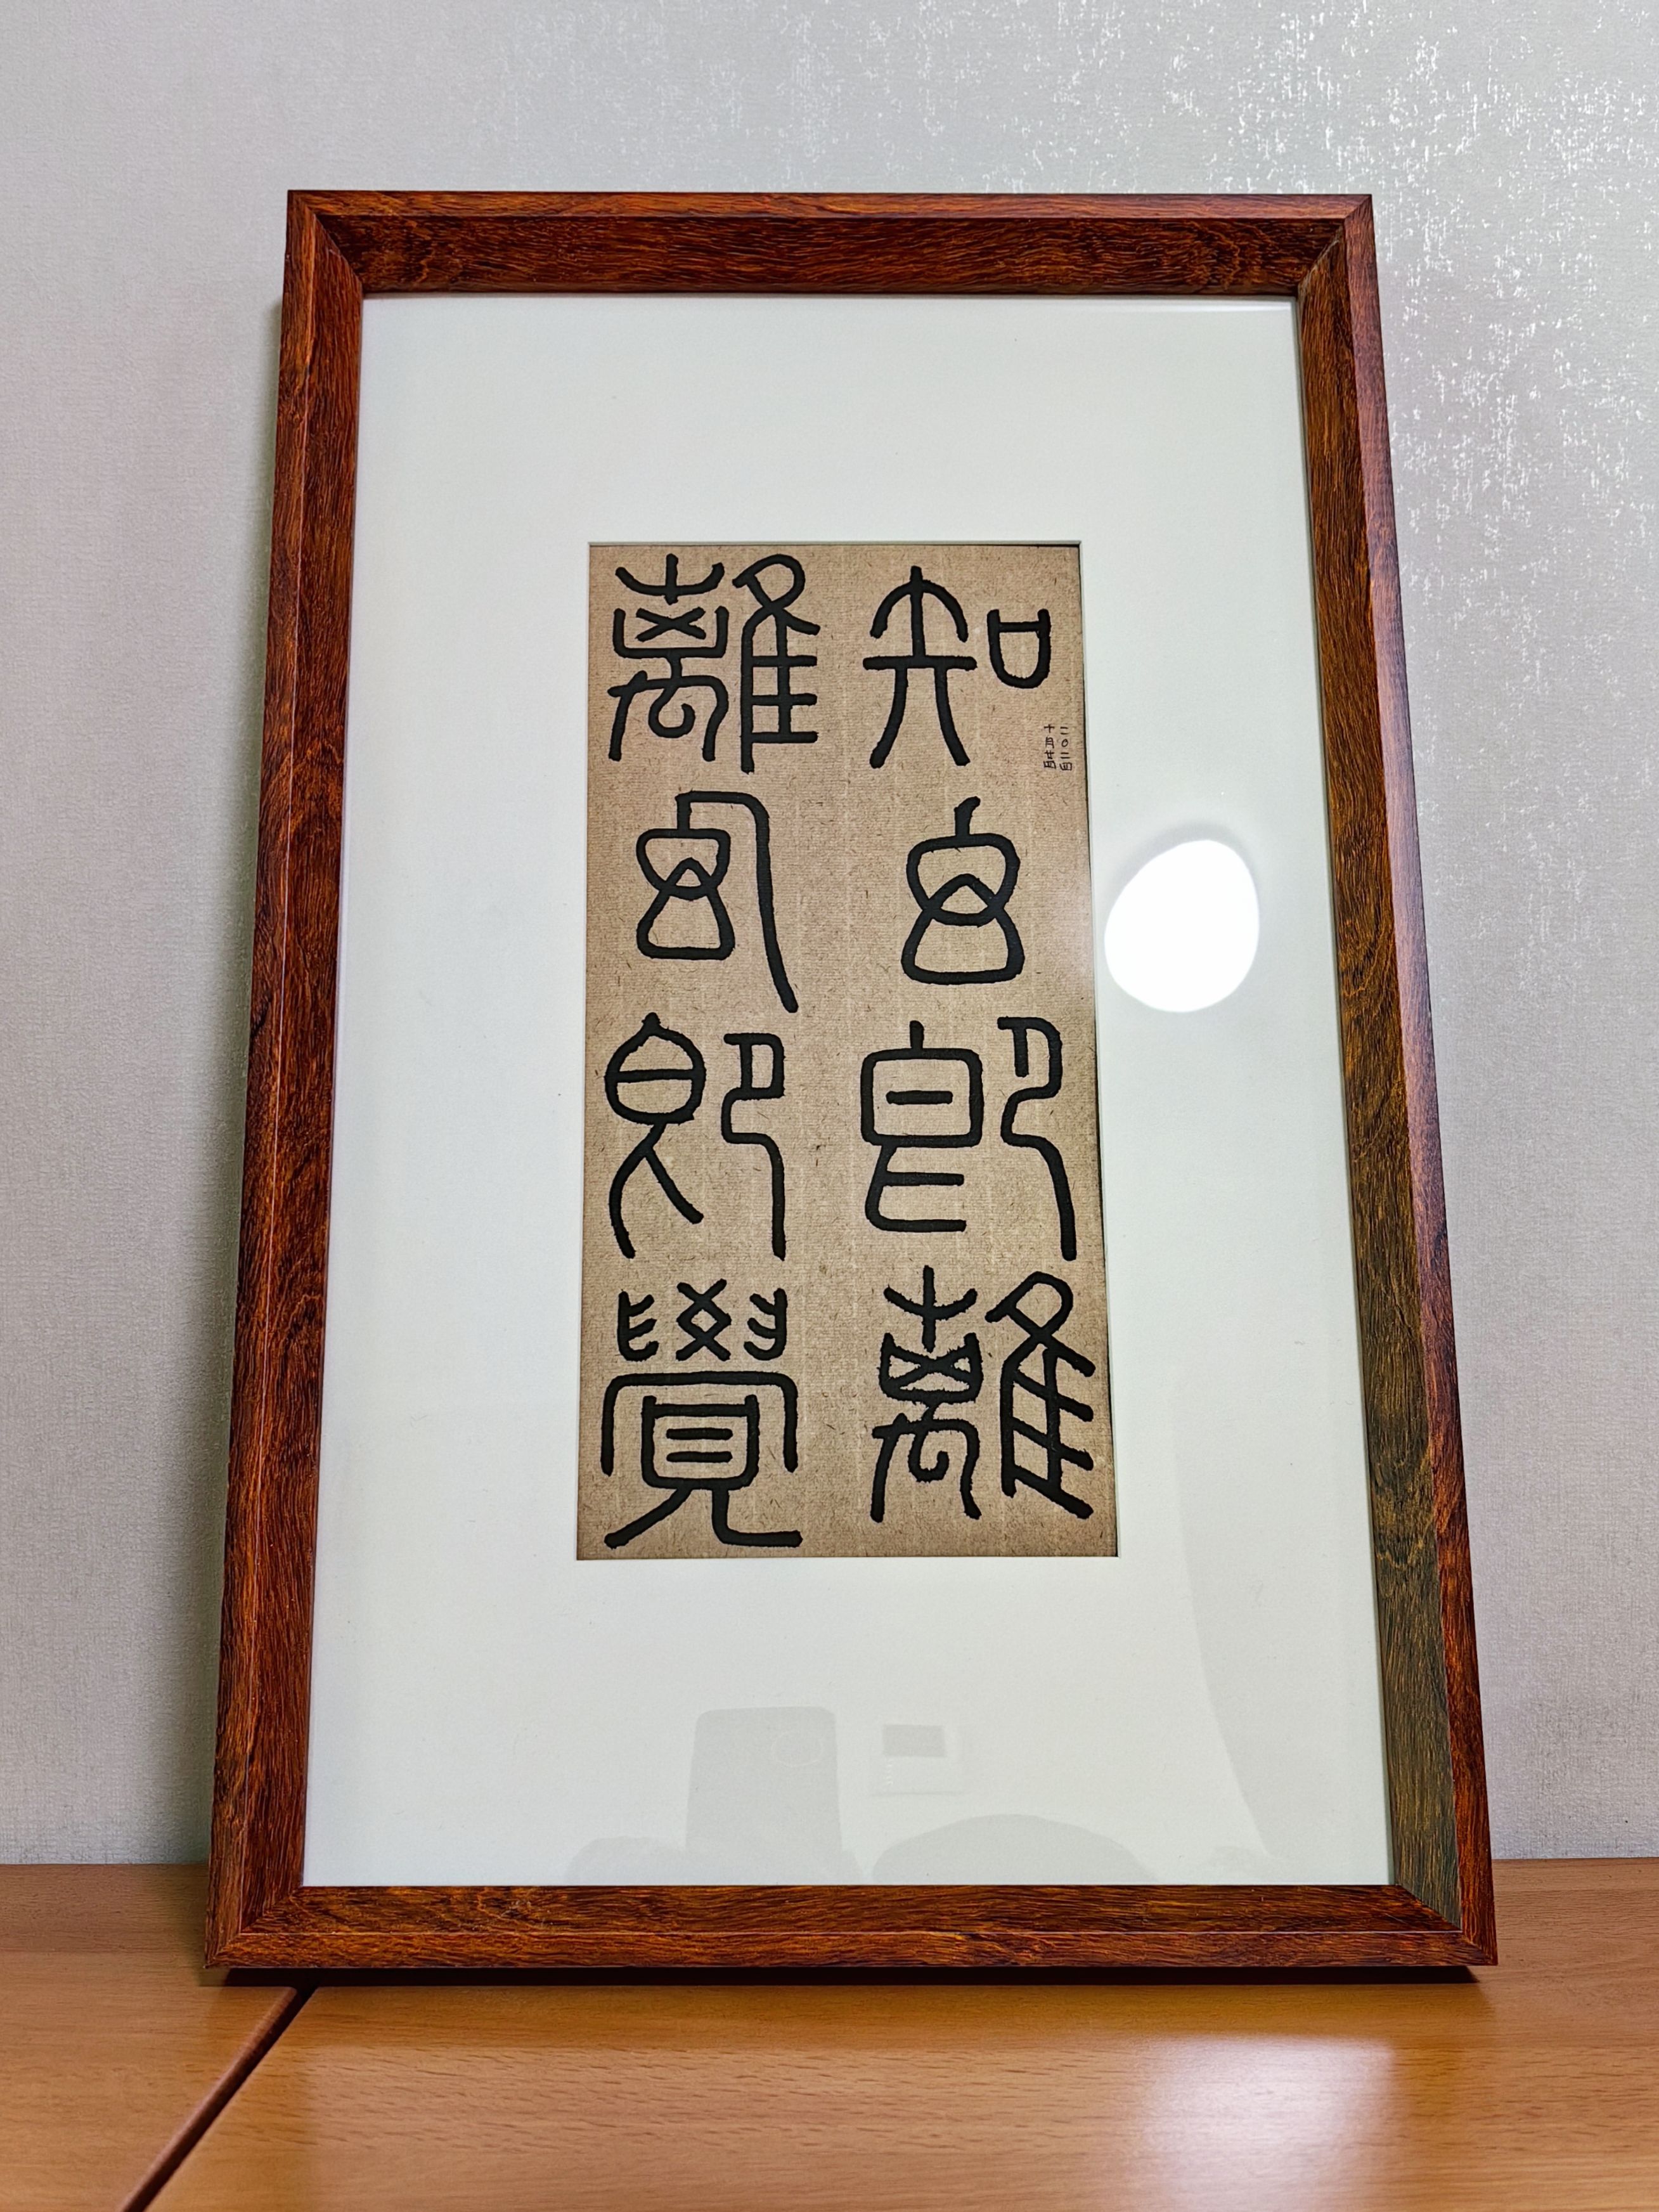 知幻即離
離幻即覺
二〇二四
十月廿四